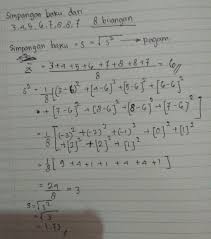 Simpangan baku dari
3,4,5,6,7,8,8,7 8 bilangan
Simpangan baku = S = √S² → ragam
x̄ = 3+4+5+6+7+8+8+7 / 8 = 6
S² = 1/8 [(3-6)² + (4-6)² + (5-6)² + (6-6)²
+ (7-6)² + (8-6)² + (8-6)² + (7-6)²]
= 1/8 [(-3)² + (-2)² + (-1)² + (0)² + (1)²
+ (2)² + (2)² + (1)²]
= 1/8 [9+4+1+1+4+4+1]
= 24/8 = 3
S = √S²
= √3
= 1.73